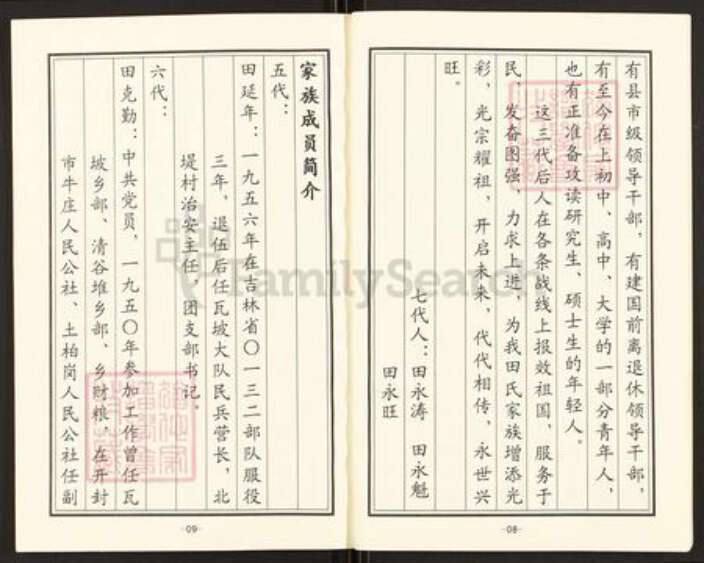 有县市级领导干部，有建国前离退休领导干部，
有至今在上初中、高中、大学的一部分青年人，
也有正准备攻读研究生、硕士生的年轻人。
这三代后人在各条战线上报效祖国，服务于
民，发奋图强，力求上进，为我田氏家族增添光
彩，光宗耀祖，开启未来，代代相传，永世兴
旺。
七代人：田永涛　田永魁
田永旺
·08·
家族成员简介
五代：
田延年：一九五六年在吉林省〇一三二部队服役
三年，退伍后任瓦坡大队民兵营长，北
堤村治安主任，团支部书记。
六代：
田克勤：中共党员，一九五〇年参加工作曾任瓦
坡乡部、清谷堆乡部、乡财粮，在开封
市牛庄人民公社、土柏岗人民公社任副
·09·
FamilySearch